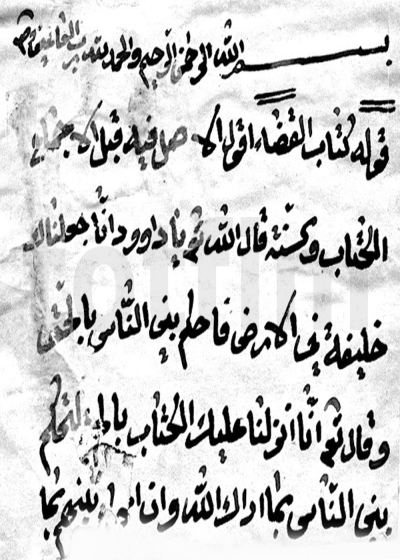 بسم الله الرحمن الرحيم والحمد لله رب العالمين
قوله كتاب القضاء اقول الاصل فيه قبل الاجماع
الكتاب والسنة قال الله تع يا داوود انّا جعلناك
خليفة في الارض فاحكم بين الناس بالحق
وقال تع انّا انزلنا عليك الكتاب لتحكم
بين الناس بما اراك الله وان بينهم بما